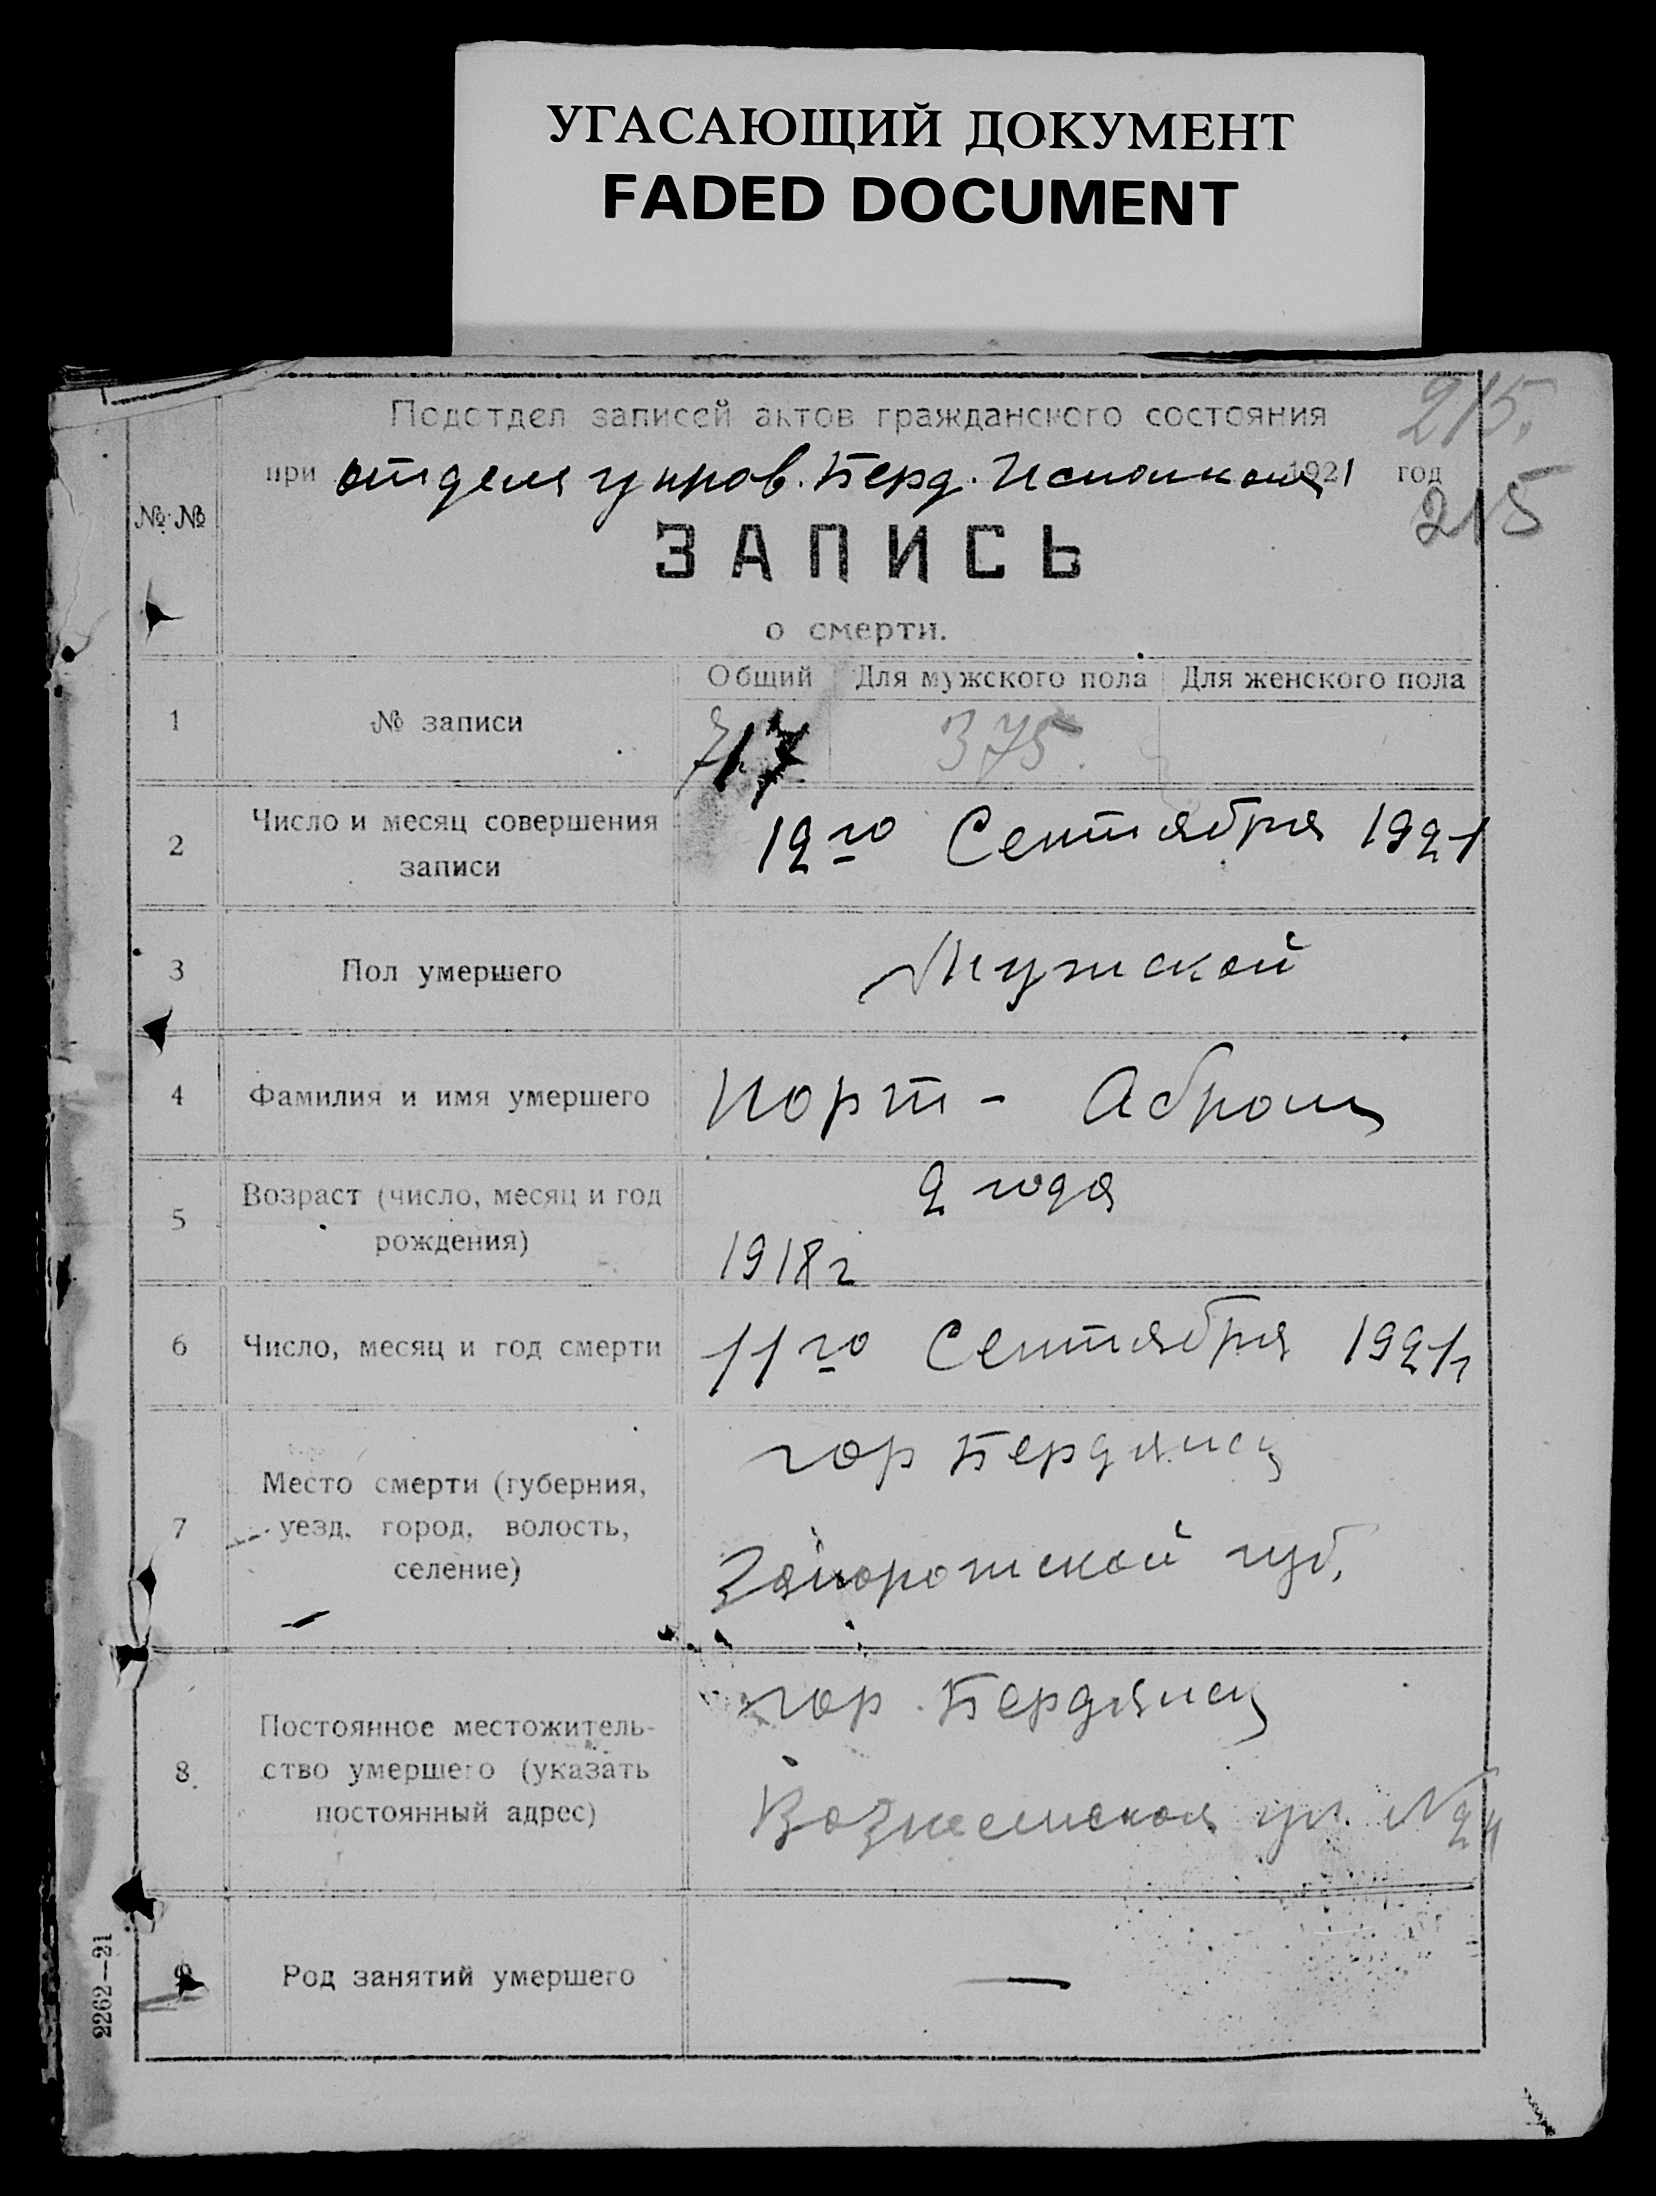 УГАСАЮЩИЙ ДОКУМЕНТ
FADED DOCUMENT
215.
Подотдел записей актов гражданского состояния
при отдела управ. Берд. Исполкома 1921 год
215
№ №
ЗАПИСЬ
о смерти.
Общий Для мужского пола Для женского пола
1 № записи 717 375.
2 Число и месяц совершения
записи
12го Сентября 1921
3 Пол умершего Мужской
4 Фамилия и имя умершего Порт - Абрам
5 Возраст (число, месяц и год
рождения)
2 года
1918 г
6 Число, месяц и год смерти 11го Сентября 1921 г
7 Место смерти (губерния,
уезд, город, волость,
селение)
гор Бердянск
Запорожской губ.
8 Постоянное местожитель-
ство умершего (указать
постоянный адрес)
гор. Бердянск
ул. №
9 Род занятий умершего —
2262—21